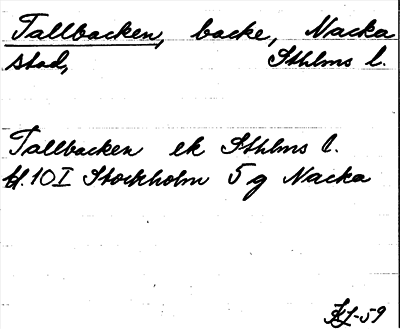 Tallbacken, backe, Nacka
stad, Sthlms l.
Tallbacken ek Sthlms l.
bl. 10 I Stockholm 5 g Nacka
KJ-59